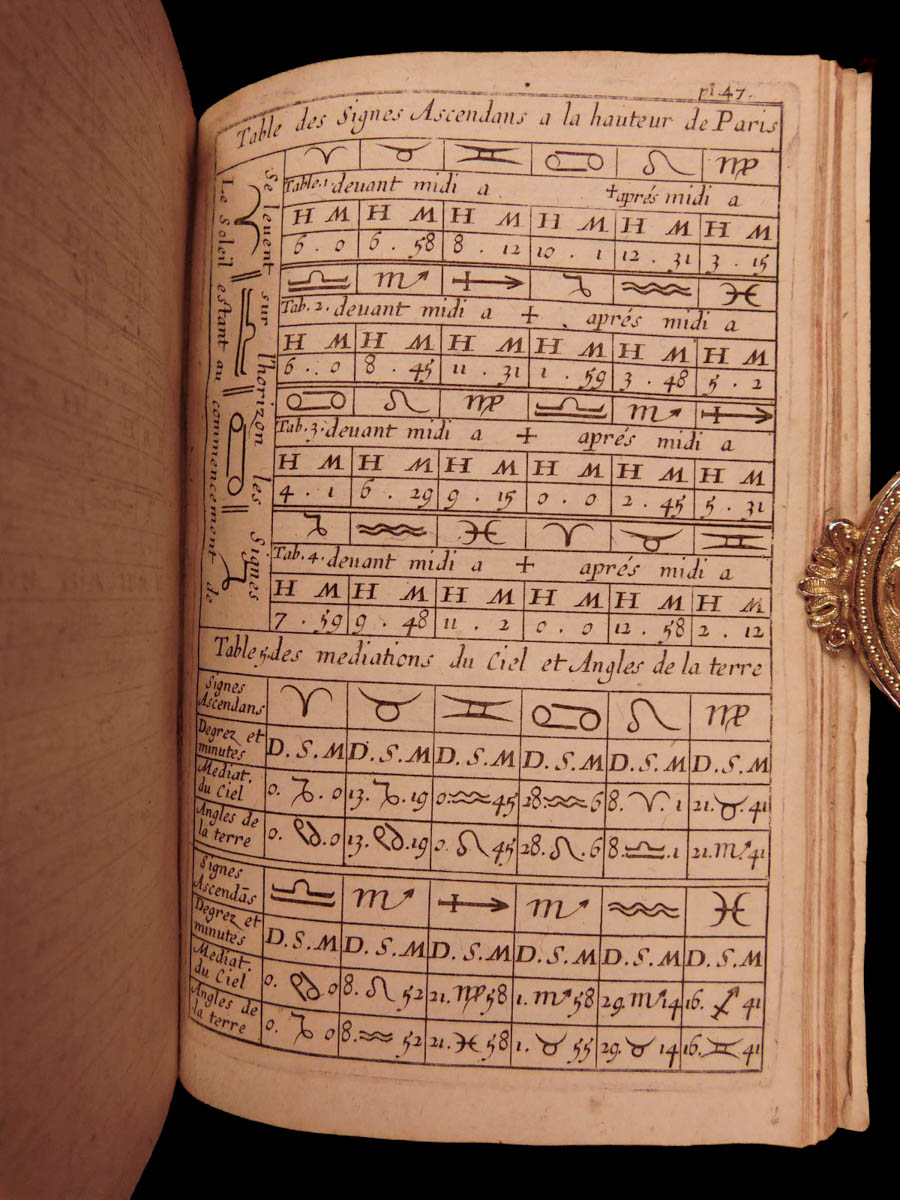 pl. 47.
Table des Signes Ascendans a la hauteur de Paris
Le Soleil estant au commencement de ♈ ♎ ♋ ♑
Se leuent sur l'horizon les Signes
♈ ♉ ♊ ♋ ♌ ♍
Table.1. devant midi a + aprés midi a
H M H M H M H M H M H M
6 . 0 6 . 58 8 . 12 10 . 1 12 . 31 3 . 15
♎ ♏ ♐ ♑ ♒ ♓
Tab. 2. devant midi a + aprés midi a
H M H M H M H M H M H M
6 . 0 8 . 45 11 . 31 1 . 59 3 . 48 5 . 2
♋ ♌ ♍ ♎ ♏ ♐
Tab. 3. devant midi a + aprés midi a
H M H M H M H M H M H M
4 . 1 6 . 29 9 . 15 0 . 0 2 . 45 5 . 31
♑ ♒ ♓ ♈ ♉ ♊
Tab. 4. devant midi a + aprés midi a
H M H M H M H M H M H M
7 . 59 9 . 48 11 . 2 0 . 0 12 . 58 2 . 12
Table 5. des mediations du Ciel et Angles de la terre
Signes Ascendans ♈ ♉ ♊ ♋ ♌ ♍
Degrez et minutes D. S. M D. S. M D. S. M D. S. M D. S. M D. S. M
Mediat. du Ciel 0. ♑. 0 13. ♑. 19 0. ♒ 45 28. ♒ 6 8. ♈. 1 21. ♉. 41
Angles de la terre 0. ♋. 0 13. ♋. 19 0. ♌ 45 28. ♌. 6 8. ♎. 1 21. ♏. 41
Signes Ascendãs ♎ ♏ ♐ ♏ ♒ ♓
Degrez et minutes D. S. M D. S. M D. S. M D. S. M D. S. M D. S. M
Mediat. du Ciel 0. ♋ 0 8. ♌ 52 21. ♍ 58 1. ♏ 58 29. ♏ 14 16. ♐ 41
Angles de la terre 0. ♑ 0 8. ♒ 52 21. ♓ 58 1. ♉ 55 29. ♉ 14 16. ♊ 41